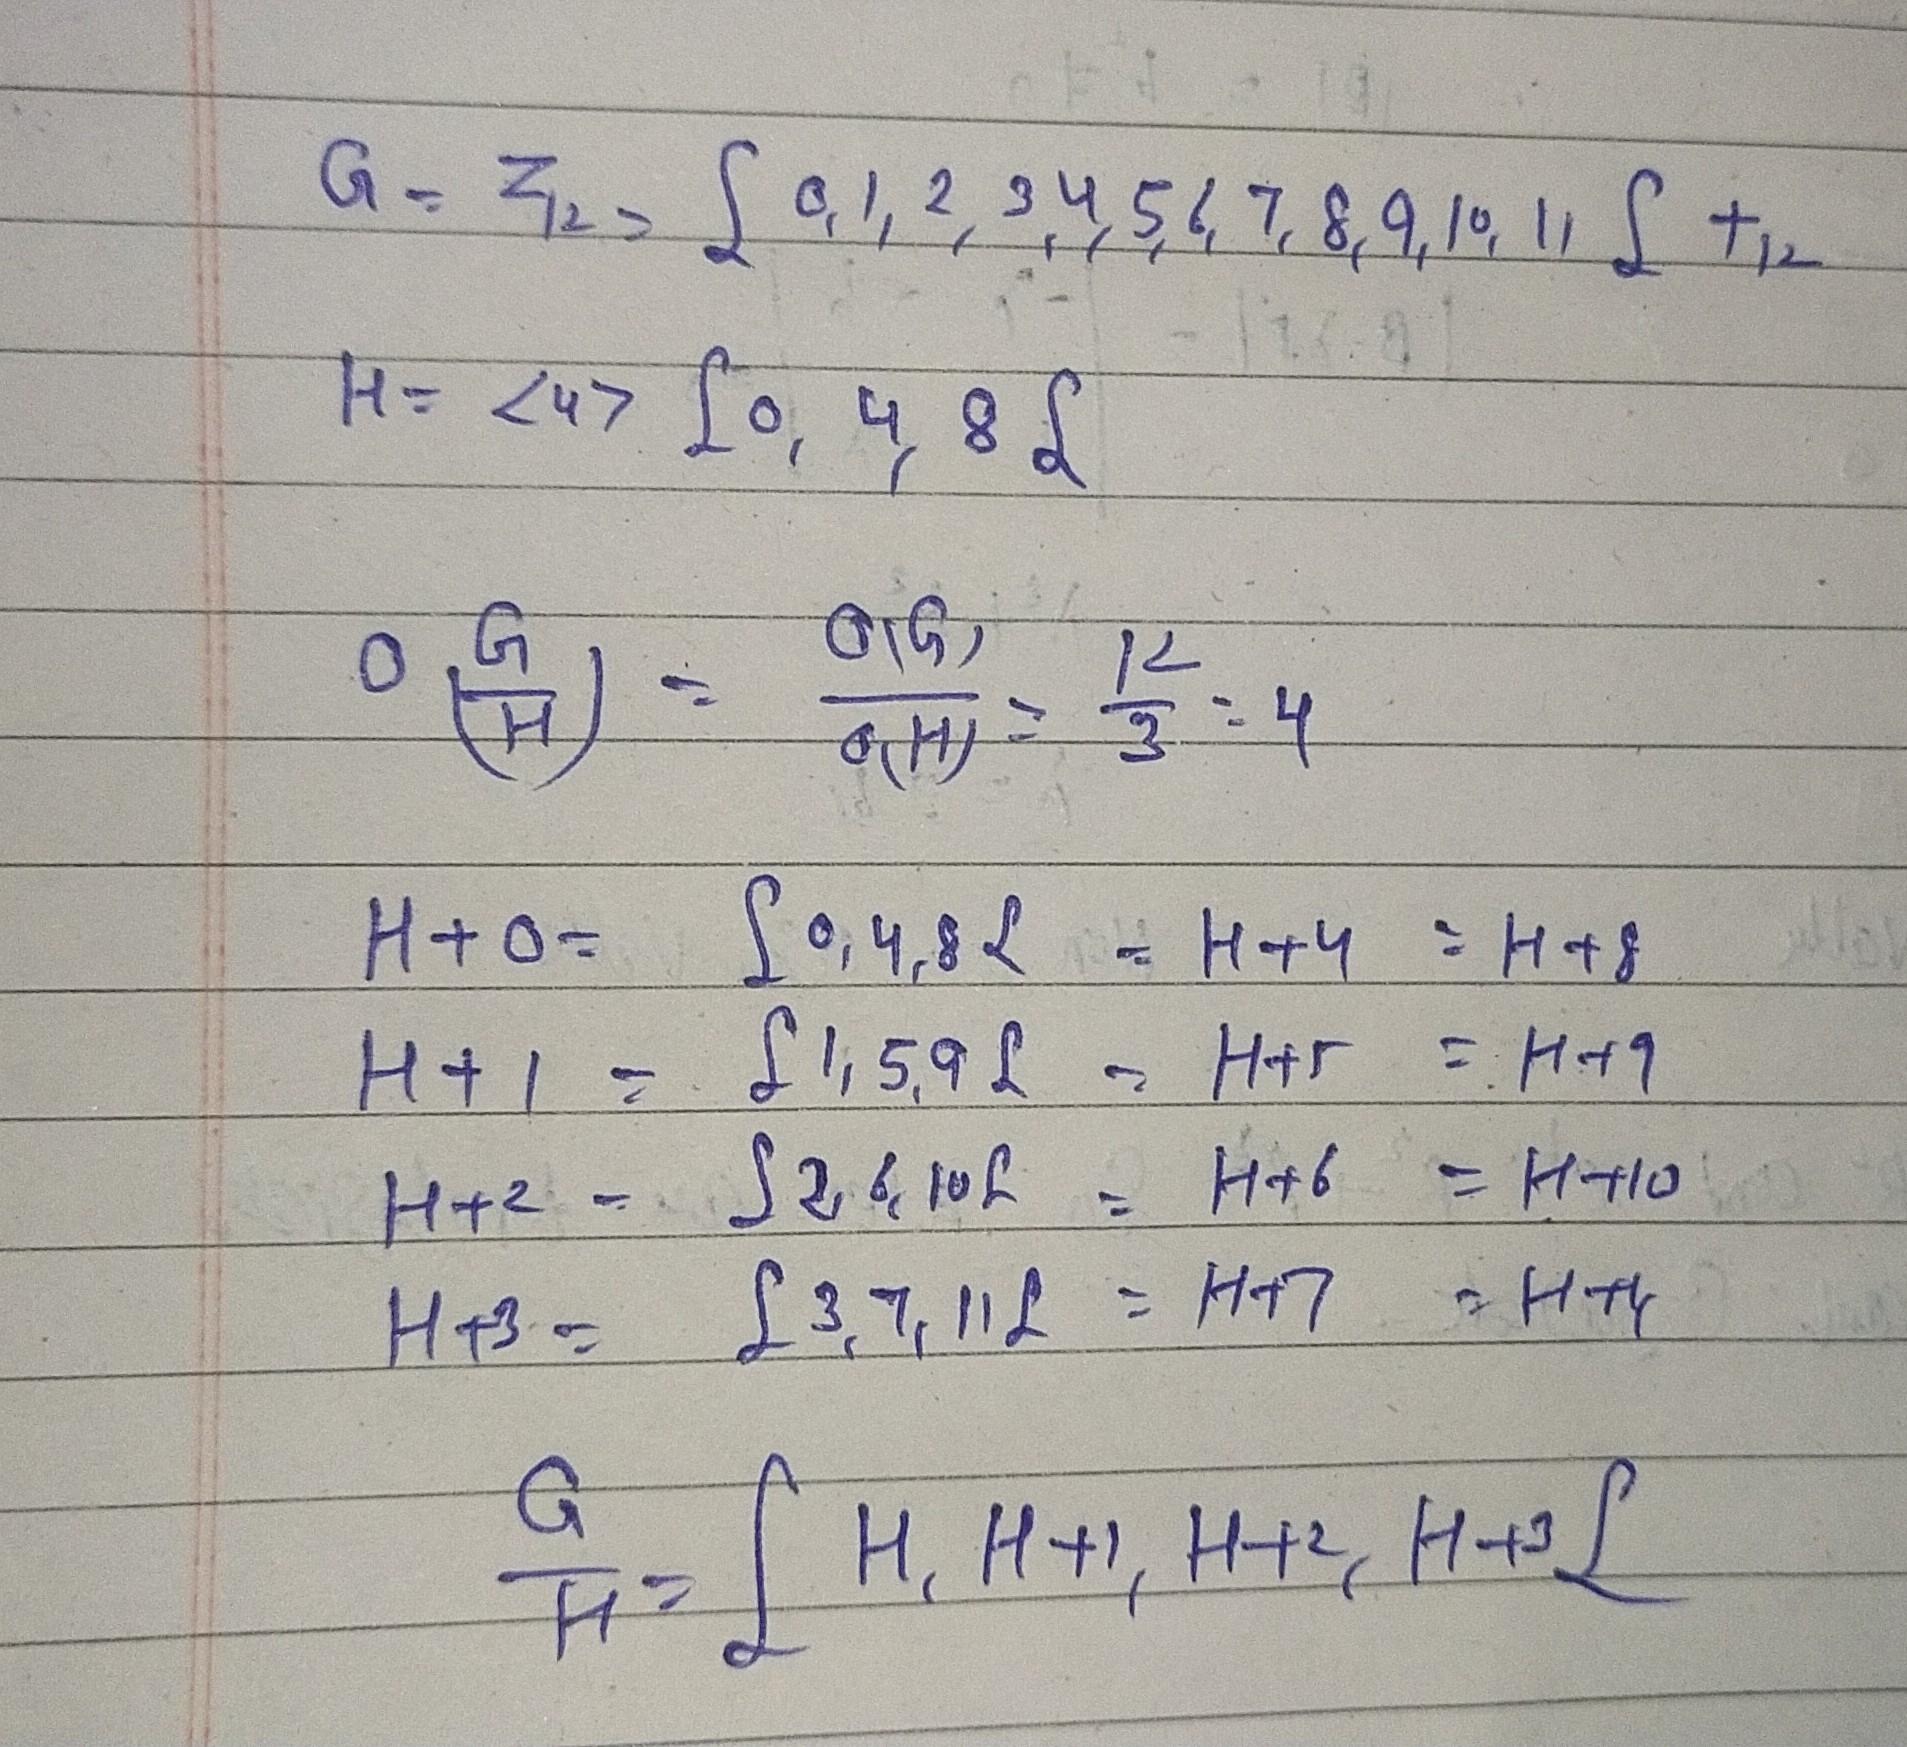 G = Z12 = { 0, 1, 2, 3, 4, 5, 6, 7, 8, 9, 10, 11 } +12
H = <4> { 0, 4, 8 }
O (G/H) = O(G)/O(H) = 12/3 = 4
H+0 = { 0, 4, 8 } = H+4 = H+8
H+1 = { 1, 5, 9 } = H+5 = H+9
H+2 = { 2, 6, 10 } = H+6 = H+10
H+3 = { 3, 7, 11 } = H+7 = H+4
G/H = { H, H+1, H+2, H+3 }